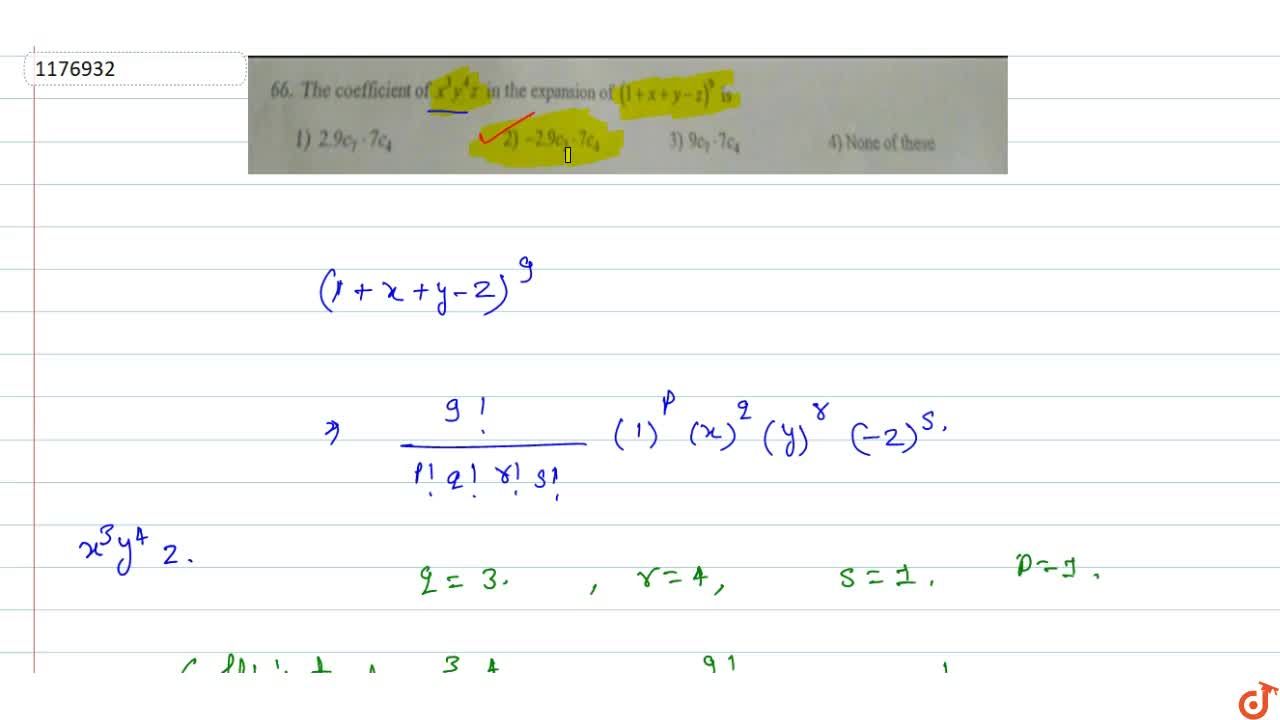 1176932
66. The coefficient of x³y⁴z in the expansion of (1+x+y−z)⁹ is
1) 2.9c₇·7c₄ 2) −2.9c₂·7c₄ 3) 9c₇·7c₄ 4) None of these
(1+x+y−z)⁹
⇒ 9! / p! q! r! s! (1)ᵖ (x)^q (y)ʳ (−z)ˢ.
x³y⁴ z.
q = 3. , r=4, s=1. p=1.